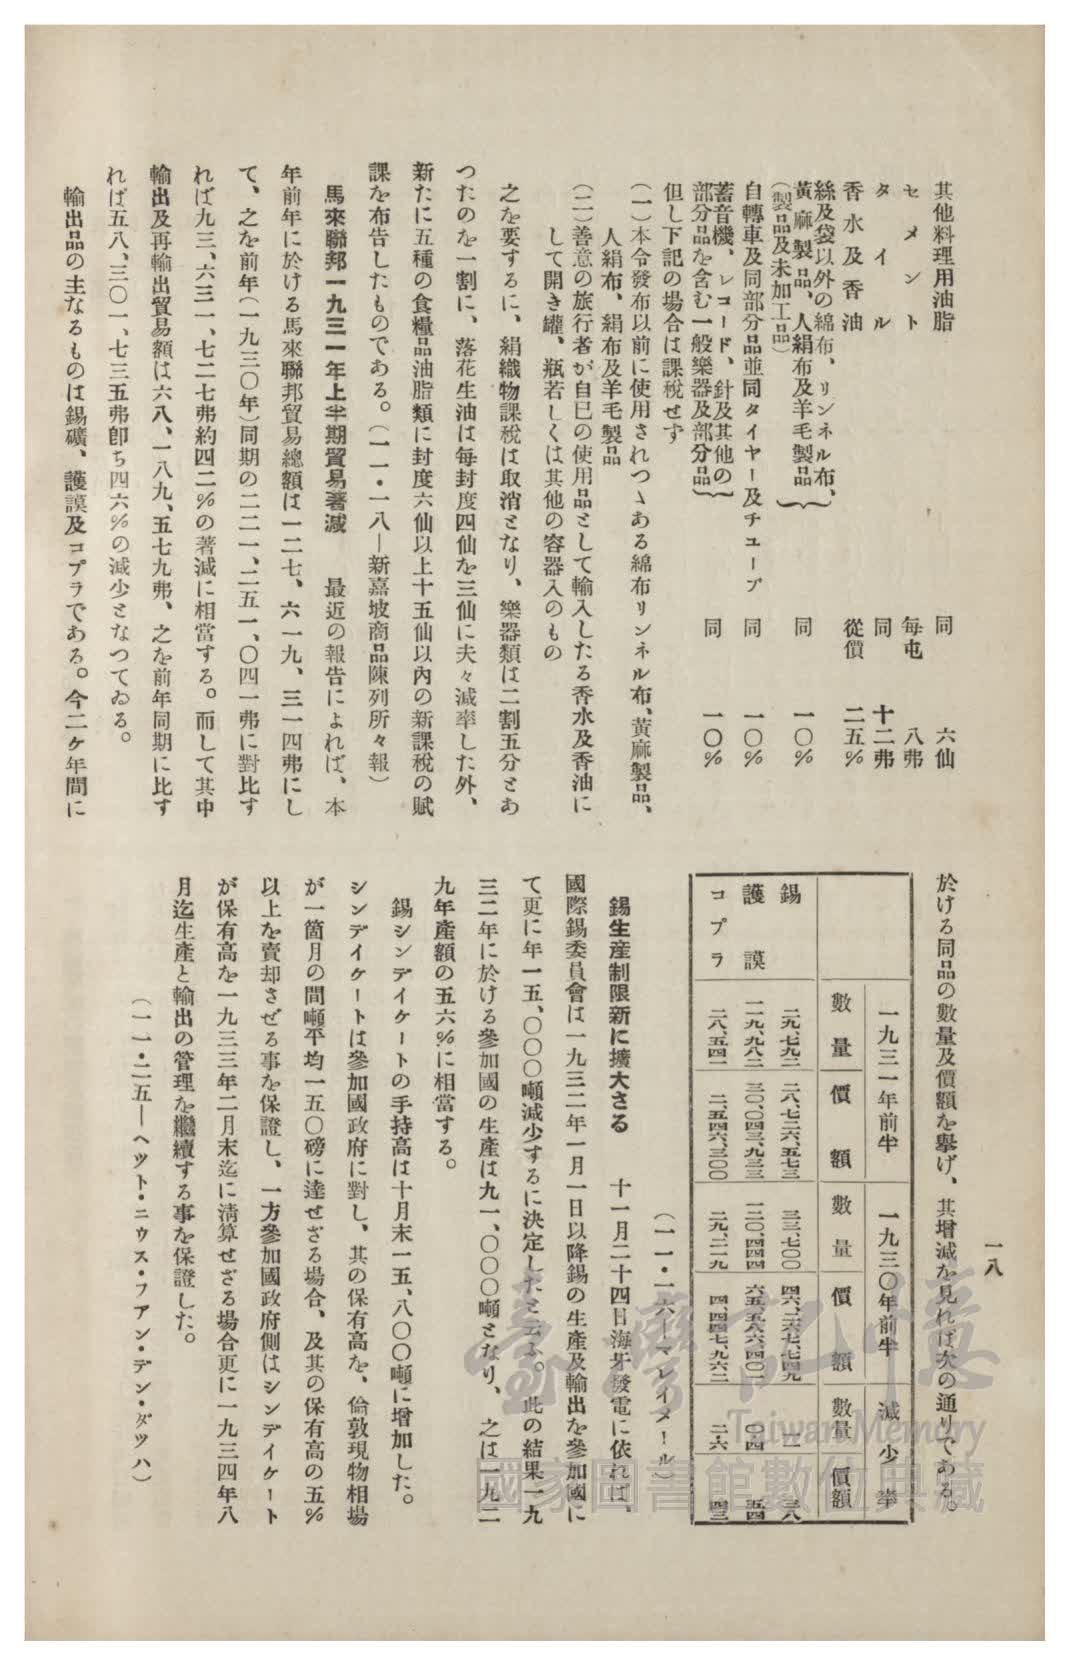 一八
其他料理用油脂　同　六仙
セメント　毎屯　八弗
タイル　同　十二弗
香水及香油　從價　二五%
絲及袋以外の綿布、リンネル布、
黃麻製品、人絹布及羊毛製品　同　一〇%
（製品及未加工品）
自轉車及同部分品並同タイヤー及チューブ　同　一〇%
蓄音機、レコード、針及其他の
部分品を含む一般樂器及部分品　同　一〇%
但し下記の場合は課稅せず
（一）本令發布以前に使用されつゝある綿布リンネル布、黃麻製品、
人絹布、絹布及羊毛製品
（二）善意の旅行者が自已の使用品として輸入したる香水及香油に
して開き罐、瓶若しくは其他の容器入のもの
之を要するに、絹織物課稅は取消となり、樂器類は二割五分とあ
つたのを一割に、落花生油は每封度四仙を三仙に夫々減率した外、
新たに五種の食糧品油脂類に封度六仙以上十五仙以內の新課稅の賦
課を布告したものである。（一一・一八―新嘉坡商品陳列所々報）
馬來聯邦一九三一年上半期貿易著減　最近の報告によれば、本
年前年に於ける馬來聯邦貿易總額は一二七、六一九、三一四弗にし
て、之を前年（一九三〇年）同期の二二一、二五一、〇四一弗に對比す
れば九三、六三一、七二七弗約四二%の著減に相當する。而して其中
輸出及再輸出貿易額は六八、一八九、五七九弗、之を前年同期に比す
れば五八、三〇一、七三五弗卽ち四六%の減少となつてゐる。
輸出品の主なるものは錫礦、護謨及コプラである。今二ケ年間に
於ける同品の數量及價額を擧げ、其增減を見れば次の通りである。
一九三一年前半　一九三〇年前半　減少率
數量　價額　數量　價額　數量　價額
錫　二九、七九二　二八、七二六、五七三　三三、七〇〇　四六、二六七、七四九　一二　三八
護謨　一一九、九八二　三〇、〇四三、九三三　一二〇、四四四　六五、五八六、四〇一　〇四　五四
コプラ　二八、五四一　二、五四六、三〇〇　二九、二一九　四、四四七、九六二　二・六　四三
（一一・一六―マレイメール）
錫生産制限新に擴大さる　十一月二十四日海牙發電に依れば、
國際錫委員會は一九三二年一月一日以降錫の生産及輸出を參加國に
て更に年一五、〇〇〇噸減少するに決定したと云ふ。此の結果一九
三二年に於ける參加國の生產は九一、〇〇〇噸となり、之は一九二
九年產額の五六%に相當する。
錫シンデイケートの手持高は十月末一五、八〇〇噸に增加した。
シンデイケートは參加國政府に對し、其の保有高を、倫敦現物相場
が一箇月の間噸平均一五〇磅に達せざる場合、及其の保有高の五%
以上を賣却させざる事を保證し、一方參加國政府側はシンデイケート
が保有高を一九三三年二月末迄に淸算せざる場合更に一九三四年八
月迄生產と輸出の管理を繼續する事を保證した。
（一一・二五―ヘツト・ニウス・フアン・デン・ダツハ）
臺灣記憶
Taiwan Memory
國家圖書館數位典藏